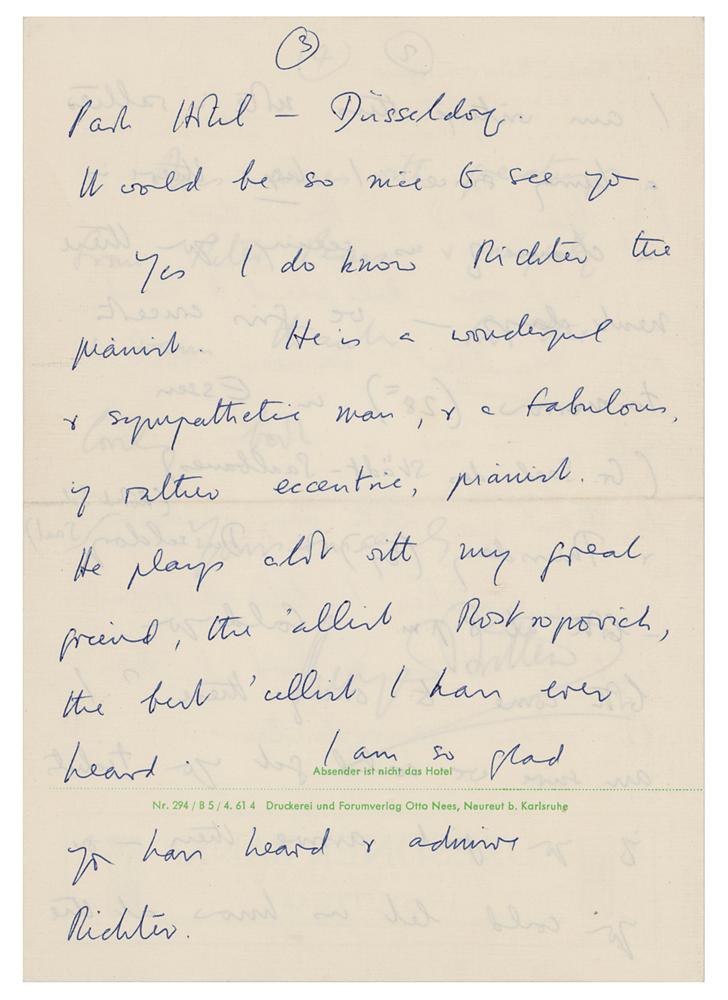 3
Park Hotel – Düsseldorf.
It would be so nice to see yo.
Yes I do know Richter the
pianist. He is a wonderful
& sympathetic man, & a fabulous,
if rather eccentric, pianist.
He plays alot with my great
friend, the 'cellist Rostropovich,
the best 'cellist I have ever
heard. I am so glad
Absender ist nicht das Hotel
Nr. 294 / B 5 / 4. 61 4 Druckerei und Forumverlag Otto Nees, Neureut b. Karlsruhe
yo have heard & admire
Richter.